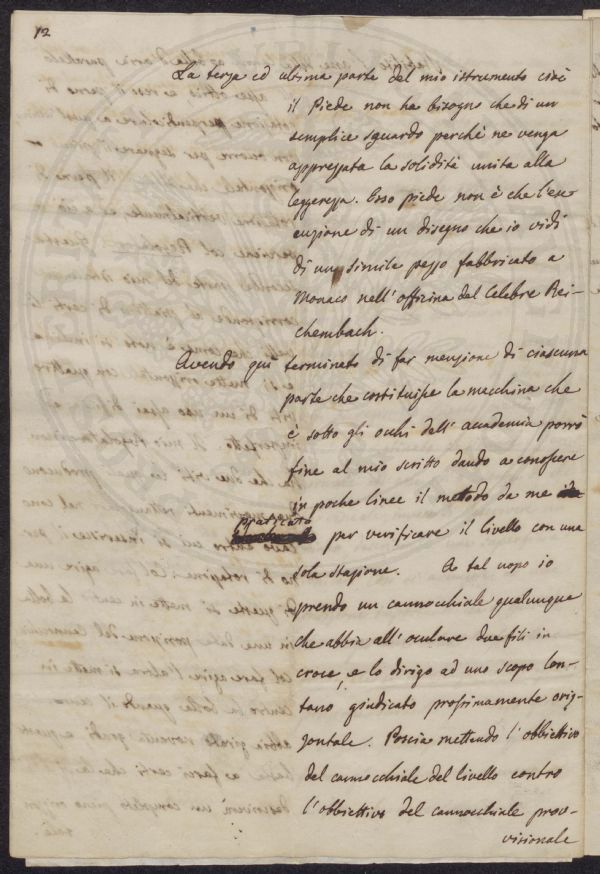 12
La terza ed ultima parte del mio istrumento cioè
il Piede non ha bisogno che di un
semplice sguardo perché ne venga
apprezzata la solidità unita alla
leggerezza. Esso piede non è che l'ese-
cuzione di un disegno che io vidi
di un simile pezzo fabbricato a
Monaco nell'officina del Celebre Rei-
chembach.
Avendo quì terminato di far menzione di ciascuna
parte che costituisce la macchina che
è sotto gli occhi dell'accademia porrò
fine al mio scritto dando a conoscere
in poche linee il metodo da me
praticato
per verificare il livello con una
sola stazione. A tal uopo io
prendo un cannocchiale qualunque
che abbia all'oculare due fili in
croce, e lo dirigo ad uno scopo lon-
tano giudicato prossimamente oriz-
zontale. Poscia mettendo l'obbiettivo
del cannocchiale del livello contro
l'obbiettivo del cannocchiale prov-
visionale